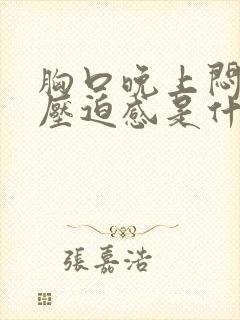 胸口晚上悶
壓迫感是什
張嘉浩